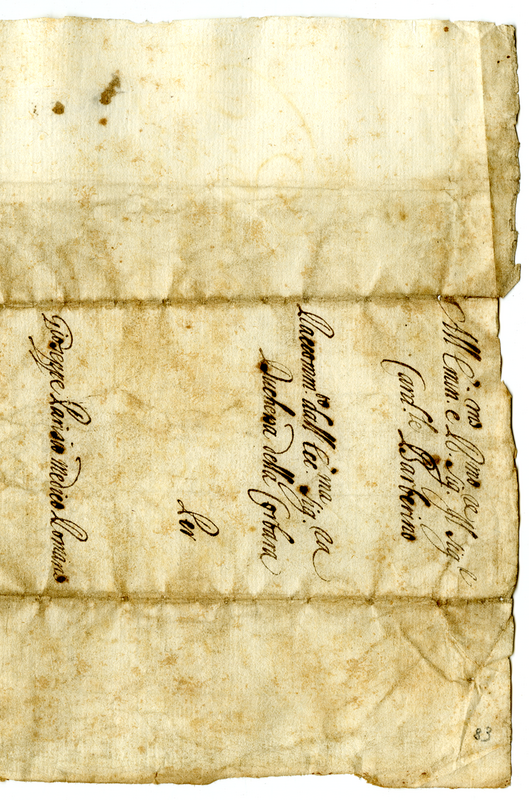 All Em.mo e R.mo Sig.re Il Sig.r
Card.le Barberino
Raccomm.to dall' Ecc.ma Sig.ra
Duchessa della Corbara
Per
Gioseppe Parisio Medico Romano
83